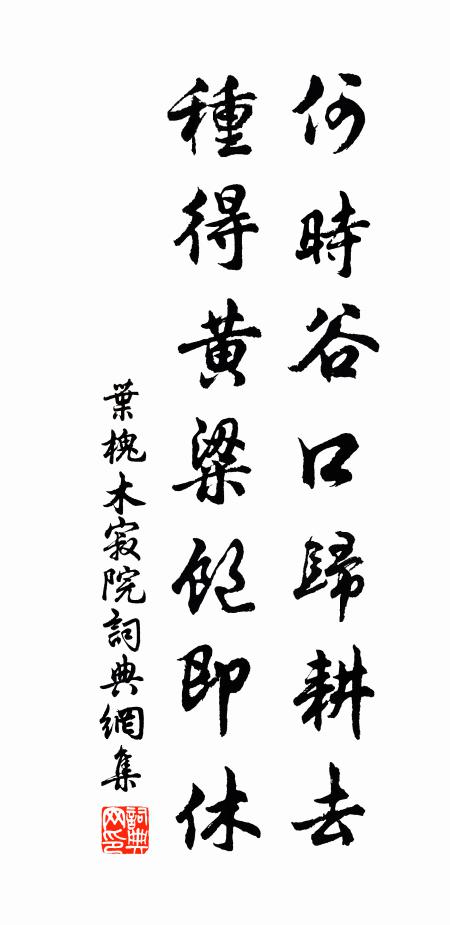 何時谷口歸耕去
種得黃粱飽即休
葉槐木寂院詞典網集
詞典網印